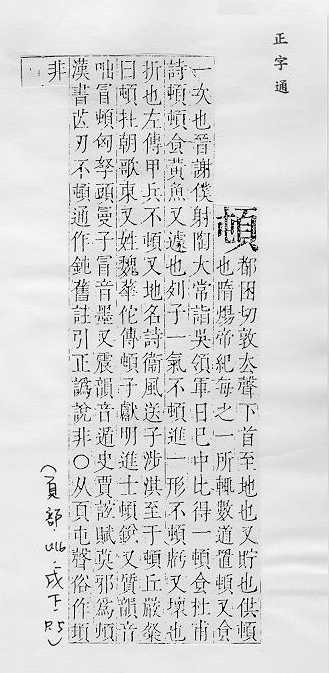 正字通
頓 都困切敦去聲下首至地也又貯也供頓
也隋煬帝紀每之一所輒數道置頓又食
一次也晉謝僕射陶大常詣吳領軍日巳中比得一頓食杜甫
詩頓頓食黃魚又遽也列子一氣不頓進一形不頓虧又壞也
折也左傳甲兵不頓又地名詩衞風送子涉淇至于頓丘嚴粲
曰頓在朝歌東又姓魏華佗傳頓子獻明進士頓銳又質韻音
咄冒頓匈孥頭曼子冒音墨又震韻音遁史賈誼賦莫邪爲頓
漢書芒刃不頓通作鈍舊註引正譌說非○从頁屯聲俗作
非
(頁部 戌下 P.5)